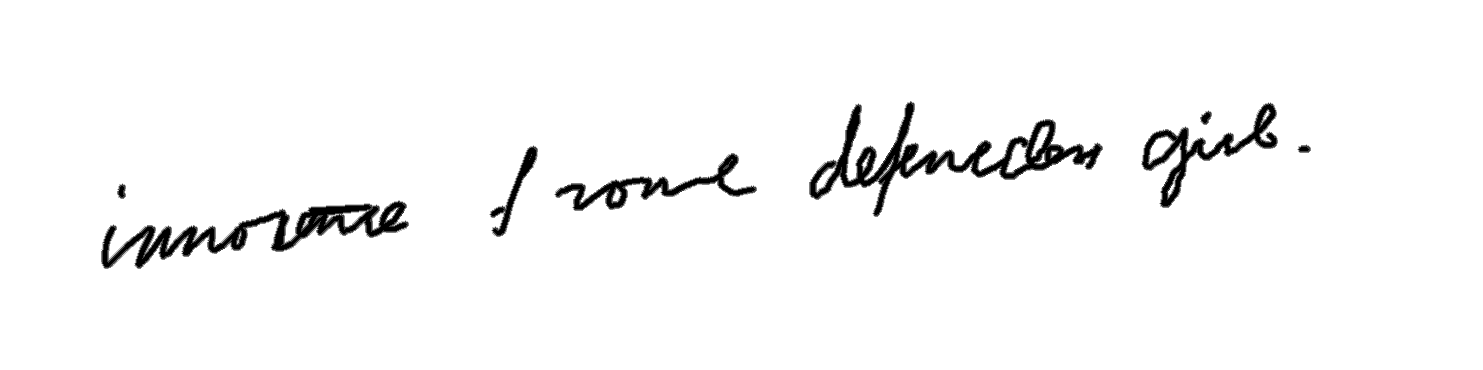 innocence of some defenceless girls.